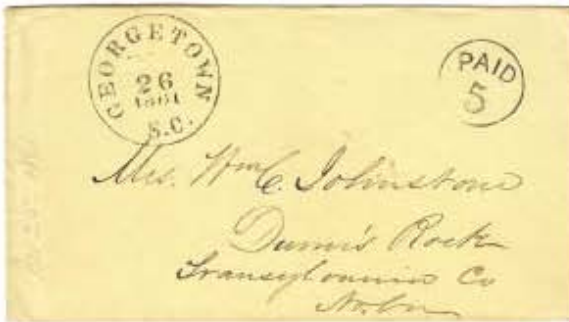 GEORGETOWN
26
1861
S.C.
PAID
5
Mrs. Wm C. Johnstone
Dunn's Rock
Transylvania Co
No. Ca